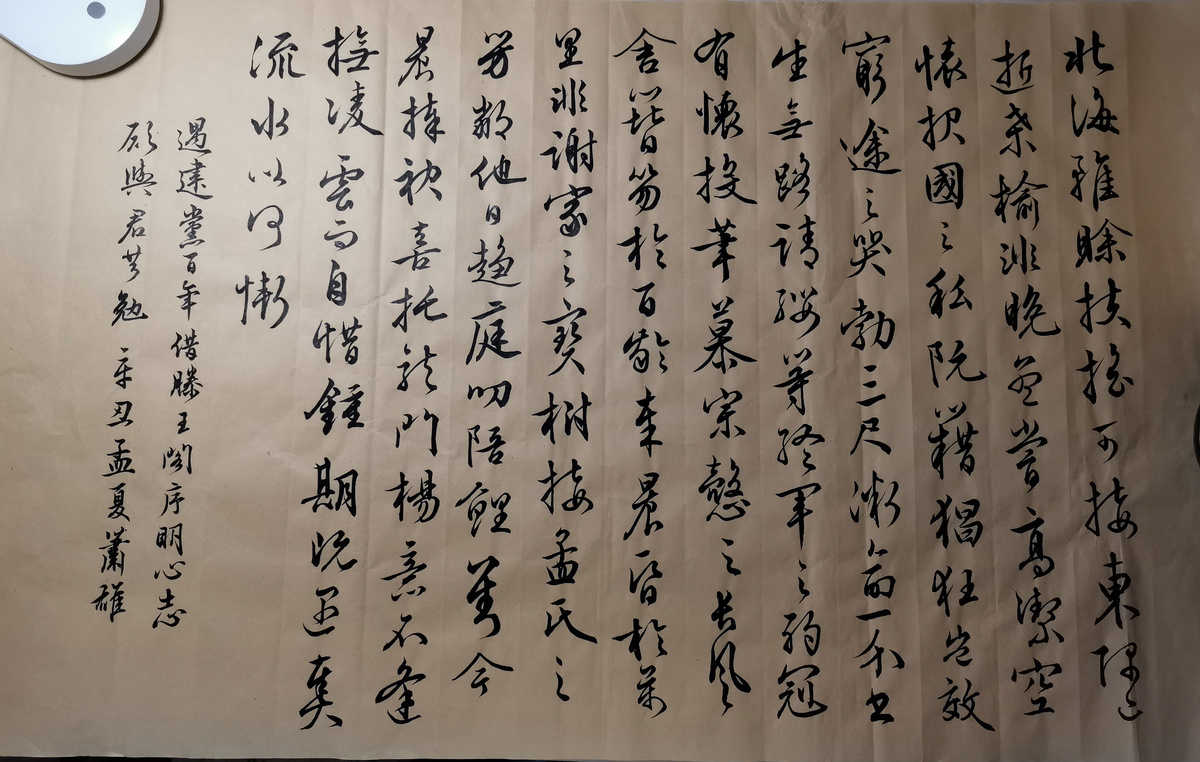 北海雖賒扶搖可接東隅已
逝桑榆非晚孟嘗高潔空
懷报國之私阮籍猖狂豈效
窮途之哭勃三尺微命一介書
生無路請纓等終軍之弱冠
有懷投筆慕宗愨之長風
舍簪笏於百齡奉晨昏於萬
里非謝家之寶樹接孟氏之
芳鄰他日趨庭叨陪鯉對今
晨捧袂喜托龍門楊意不逢
撫凌雲而自惜鍾期既遇奏
流水以何慚
遇建黨百年借滕王閣序明心志
願與君共勉 辛丑孟夏蕭雄